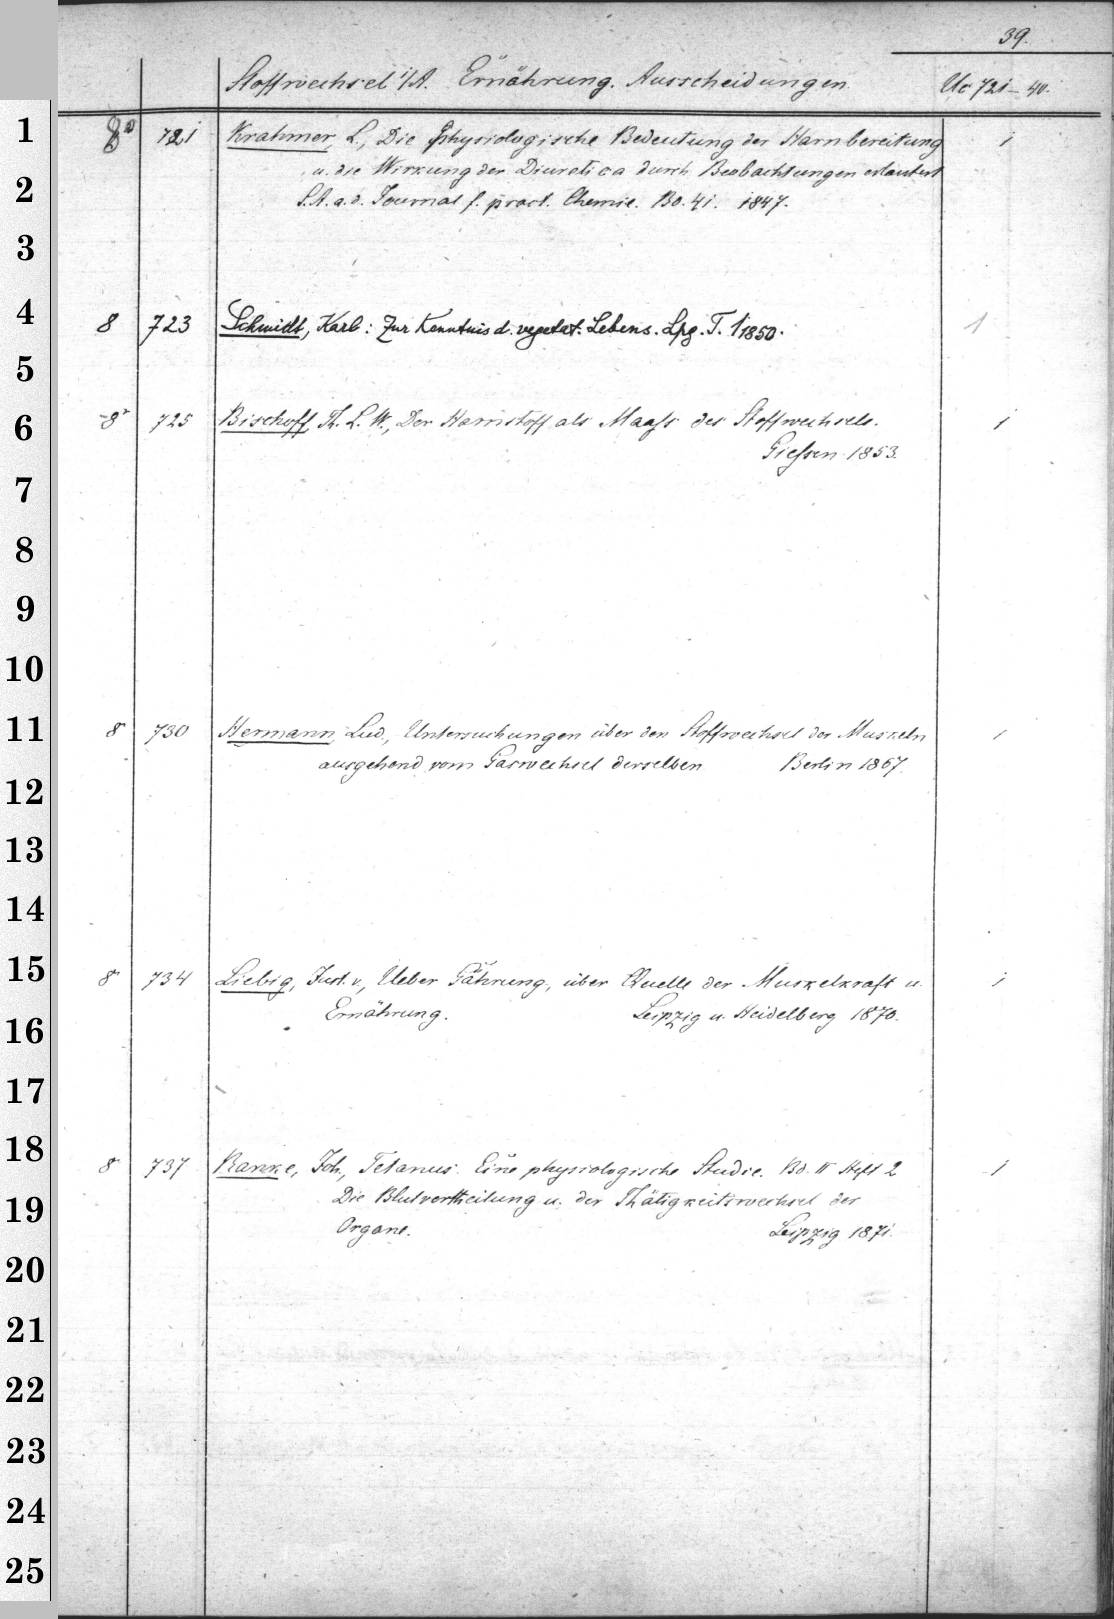 39.
Stoffwechsel i/A. Ernährung. Ausscheidungen. Uc 721–40.
1 8° 721 Krahmer, L., Die physiologische Bedeutung der Harnbereitung 1
u. die Wirkung der Diuretica durch Beobachtungen erläutert
2 S.A. a. d. Journal f. pract. Chemie. Bd. 41. 1847.
3
4 8 723 Schmidt, Karl: Zur Kenntnis d. vegetat. Lebens. Lpg. T. 1 1850. 1
5
6 8° 725 Bischoff, Th. L. W., Der Harnstoff als Maass des Stoffwechsels. 1
Giessen 1853.
7
8
9
10
11 8 730 Hermann, Lud., Untersuchungen über den Stoffwechsel der Muskeln 1
ausgehend vom Gaswechsel derselben Berlin 1867.
12
13
14
15 8 734 Liebig, Just. v., Ueber Gährung, über Quelle der Muskelkraft u. 1
16 Ernährung. Leipzig u. Heidelberg 1870.
17
18 8 737 Ranke, Joh., Tetanus. Eine physiologische Studie. Bd. II Heft 2 1
19 Die Blutvertheilung u. der Thätigkeitswechsel der
Organe. Leipzig 1871.
20
21
22
23
24
25